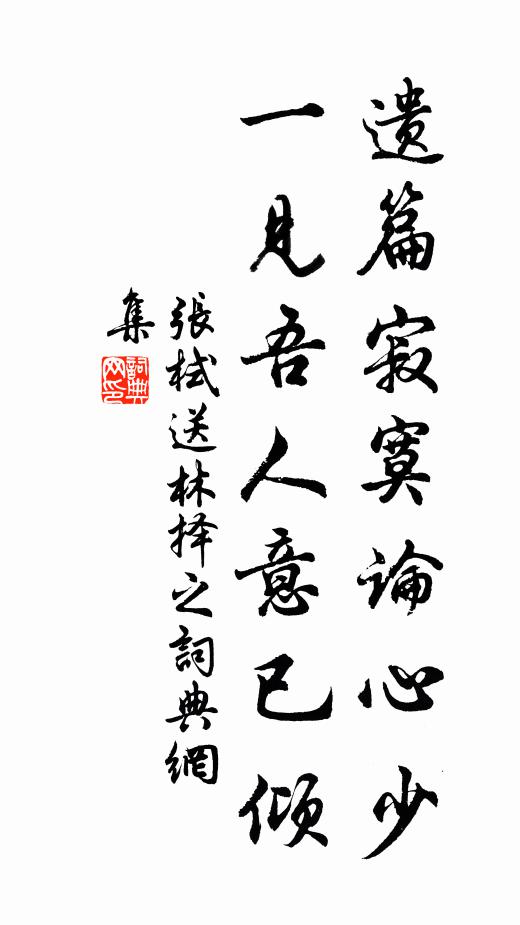 遗篇寂寞論心少
一見吾人意已倾
張栻送林择之詞典網
集
詞典
网印